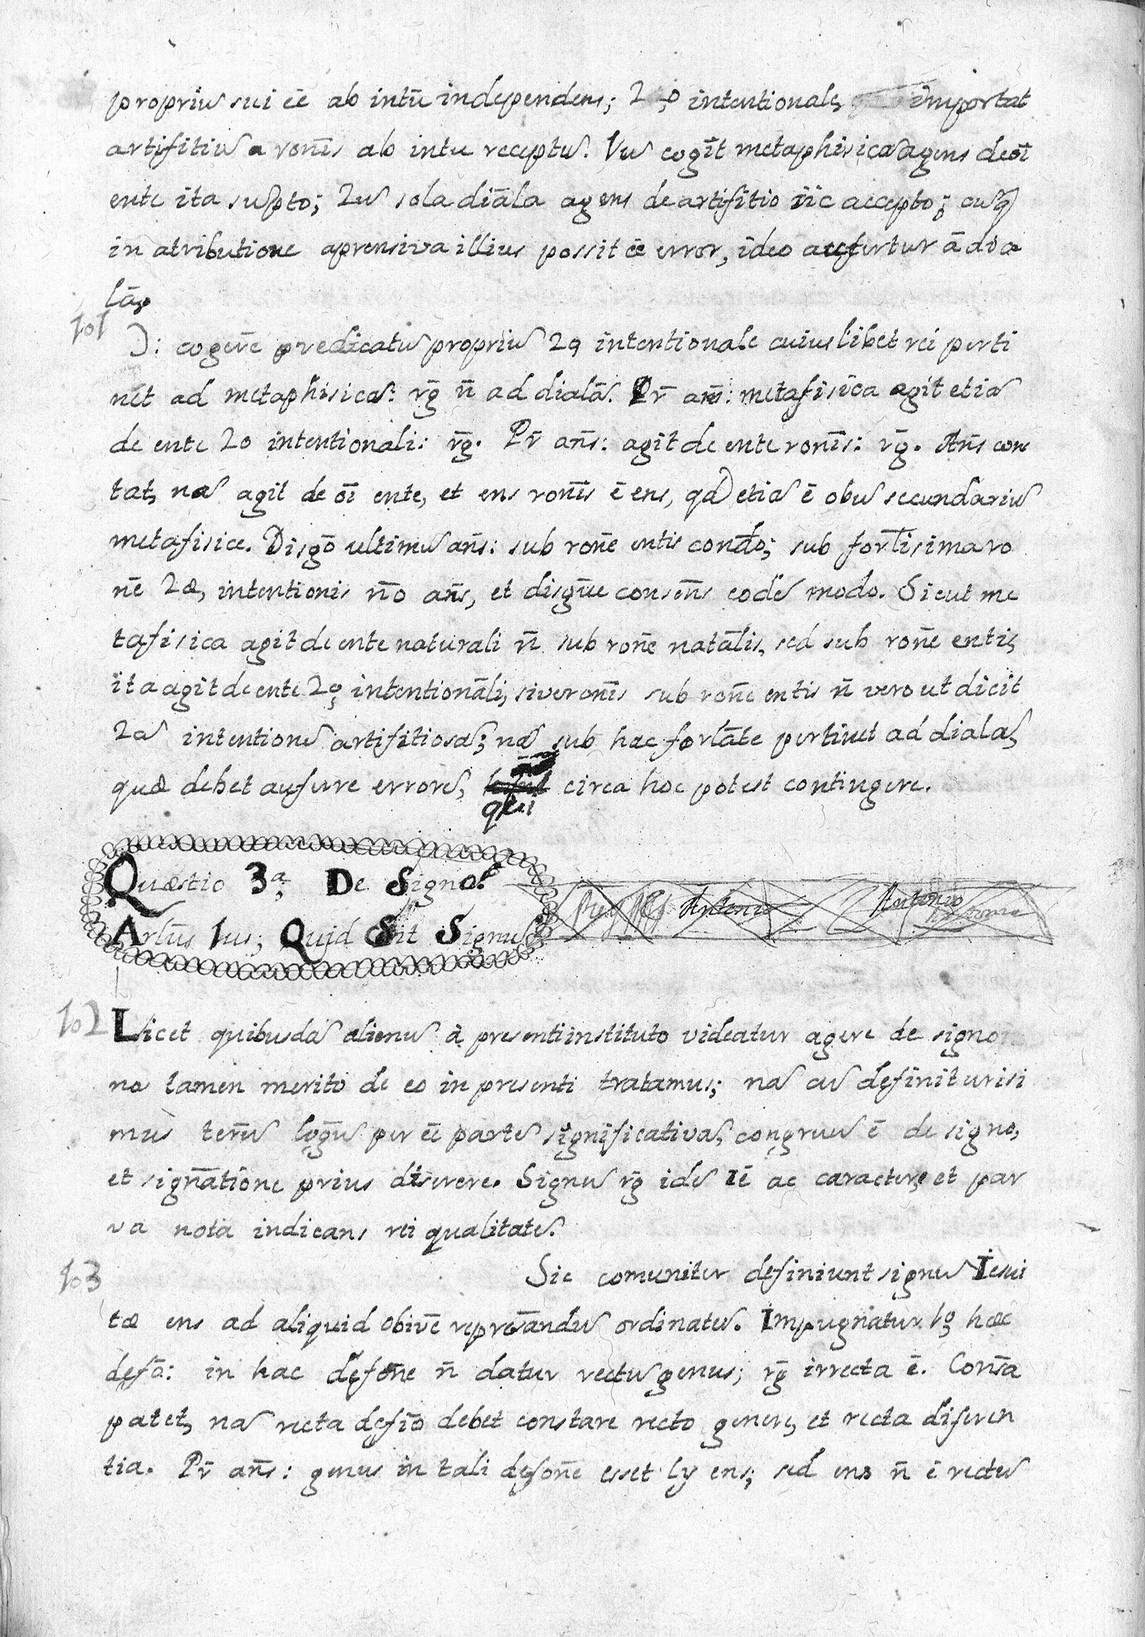 propriũ sui ēē ab intũ independens; 2 intentionale importat
artifitiũ a ronis̄ ab intu receptũ. Iũ cogit̄ metaphisica agens de oī
ente ita supto; 2ũ sola diāla agens de artifitio sic accepto; cumq
in atributione aprensiva illius possit ēē error, ideo aufertur ā dia
lā
101
D: cogere predicatũ propriũ 2o intentionale cuiuslibet rei perti
net ad metaphisicã: rg̃ ñ ad dialã. Pr̄ añs: metafisica agit etiã
de ente 2o intentionali: rg̃. Pr̄ añs: agit de ente ronis̄: rg̃. Añs con
tat, nã agit de oī ente, et ens ronis̄ ē ens, qd etiã ē obũ secundariũ
metafisice. Disgō ultimũ añs: sub rone entis condo; sub fortisima ro
nē 2æ, intentionis nō añs, et disgue consens̄ eodẽ modo. Sicut me
tafisica agit de ente naturali ñ sub rone natālis, sed sub rone entis,
ita agit de ente 2o intentionāli, sive ronis̄ sub rone entis ñ vero ut dicit
2ã intentionẽ artifitiosã; nã sub hac forlāte pertinet ad dialã,
quæ debet aufurre errorẽ, qui circa hoc potest contingere.
Quæstio 3ª; De Signo.
Artũs 1us; Quid Sit Signũ
Antonio Antonio
102 Licet quibusdã alienũ à presenti instituto videatur agere de signo
no tamen merito de eo in presenti tratamus; nã cũ definiturisi
mus ternũ logũ per ēē partẽ significativã, congruũ ē de signo,
et signatione prius diserere. Signũ rg̃ idẽ ē ac caractere et par
va nota indicans rei qualitatẽ.
103 Sic comuniter definiunt signũ Iesui
tæ ens ad aliquid obivē represāndũ ordinatũ. Impugnatur 1o hæc
desō: in hac desone ñ datur rectũ genus; rg̃ irrecta ē. Consā
patet, nã recta desiō debet constare recto genere, et recta diferen
tia. Pr̄ añs: genus in tali desone esset ly ens; sed ens ñ ē rectũ